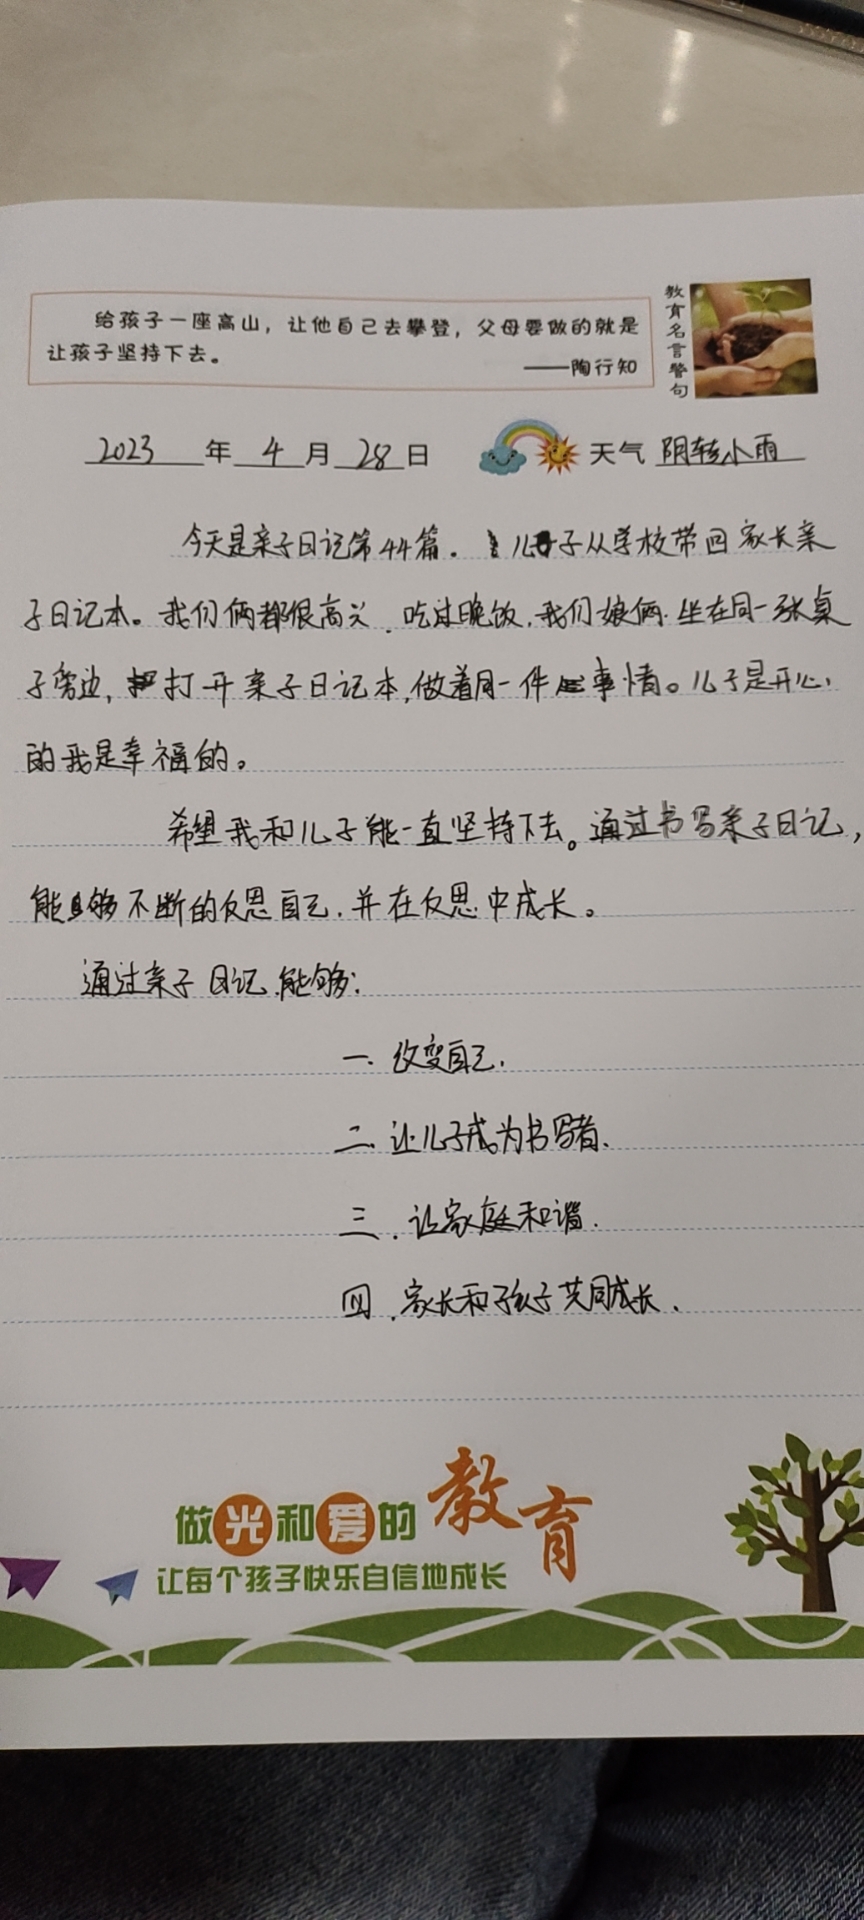 给孩子一座高山，让他自己去攀登，父母要做的就是
让孩子坚持下去。
——陶行知
教育名言警句
2023年4月28日 天气 阴转小雨
今天是亲子日记第44篇。儿子从学校带回家长亲
子日记本。我们俩都很高兴，吃过晚饭，我们娘俩坐在同一张桌
子旁边，打开亲子日记本，做着同一件事情。儿子是开心
的我是幸福的。
希望我和儿子能一直坚持下去。通过书写亲子日记，
能够不断的反思自己，并在反思中成长。
通过亲子日记，能够：
一、改变自己.
二、让儿子成为书写者.
三、让家庭和谐.
四、家长和孩子共同成长.
做光和爱的教育
让每个孩子快乐自信地成长